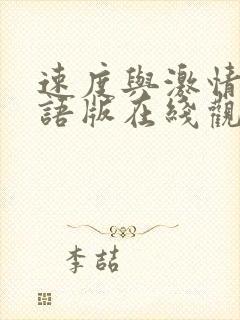 速度與激情
語版在綫觀
李喆